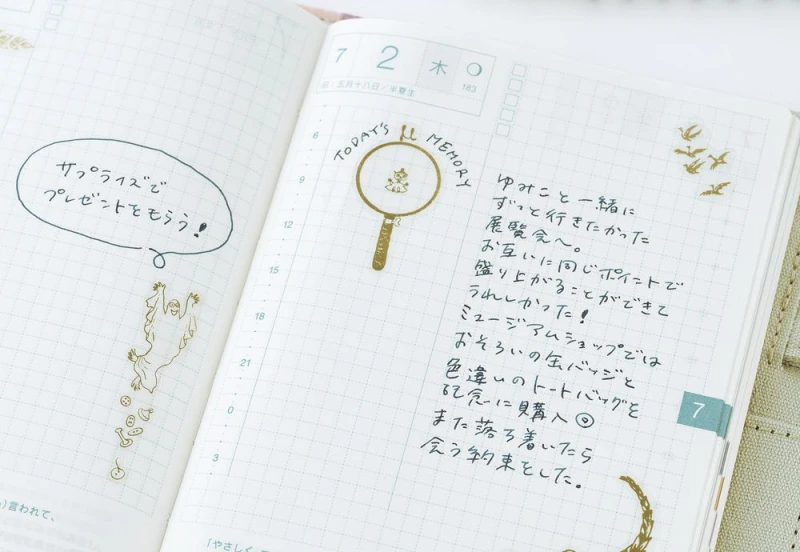 サプライズで
プレゼントをもらう!
言われて、
7 2 木
183
五月十八日/半夏生
TODAY'S MEMORY
6
9
12
15
18
21
0
3
ゆみこと一緒に
ずっと行きたかった
展覧会へ。
お互いに同じポイントで
盛り上がることができて
うれしかった!
ミュージアムショップでは
おそろいの缶バッジと
色違いのトートバッグを
記念に購入◎
また落ち着いたら
会う約束をした。
7
「やさしく